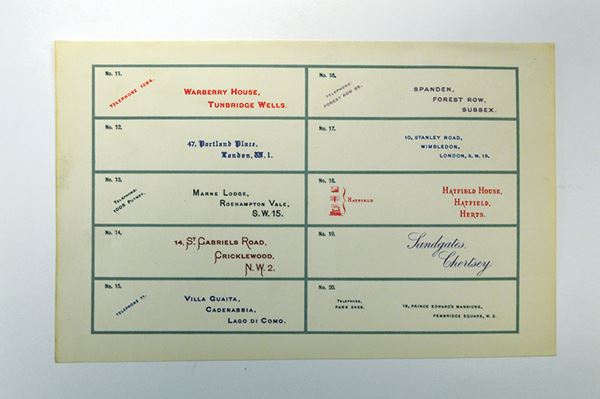 No. 11.
TELEPHONE 1084.
WARBERRY HOUSE,
TUNBRIDGE WELLS.
No. 12.
47, Portland Place,
London, W. 1.
No. 13.
TELEPHONE:
1005 PUTNEY.
MARNE LODGE,
ROEHAMPTON VALE,
S.W. 15.
No. 14.
14, ST. GABRIELS ROAD,
CRICKLEWOOD,
N.W. 2.
No. 15.
TELEPHONE 77.
VILLA GUAITA,
CADENABBIA,
LAGO DI COMO.
No. 16.
TELEPHONE:
FOREST ROW 88.
SPANDEN,
FOREST ROW,
SUSSEX.
No. 17.
10, STANLEY ROAD,
WIMBLEDON,
LONDON, S.W. 19.
No. 18.
HATFIELD.
HATFIELD HOUSE,
HATFIELD,
HERTS.
No. 19.
Sandgates,
Chertsey.
No. 20.
TELEPHONE,
PARK 2462.
19, PRINCE EDWARD'S MANSIONS,
PEMBRIDGE SQUARE, W. 2.